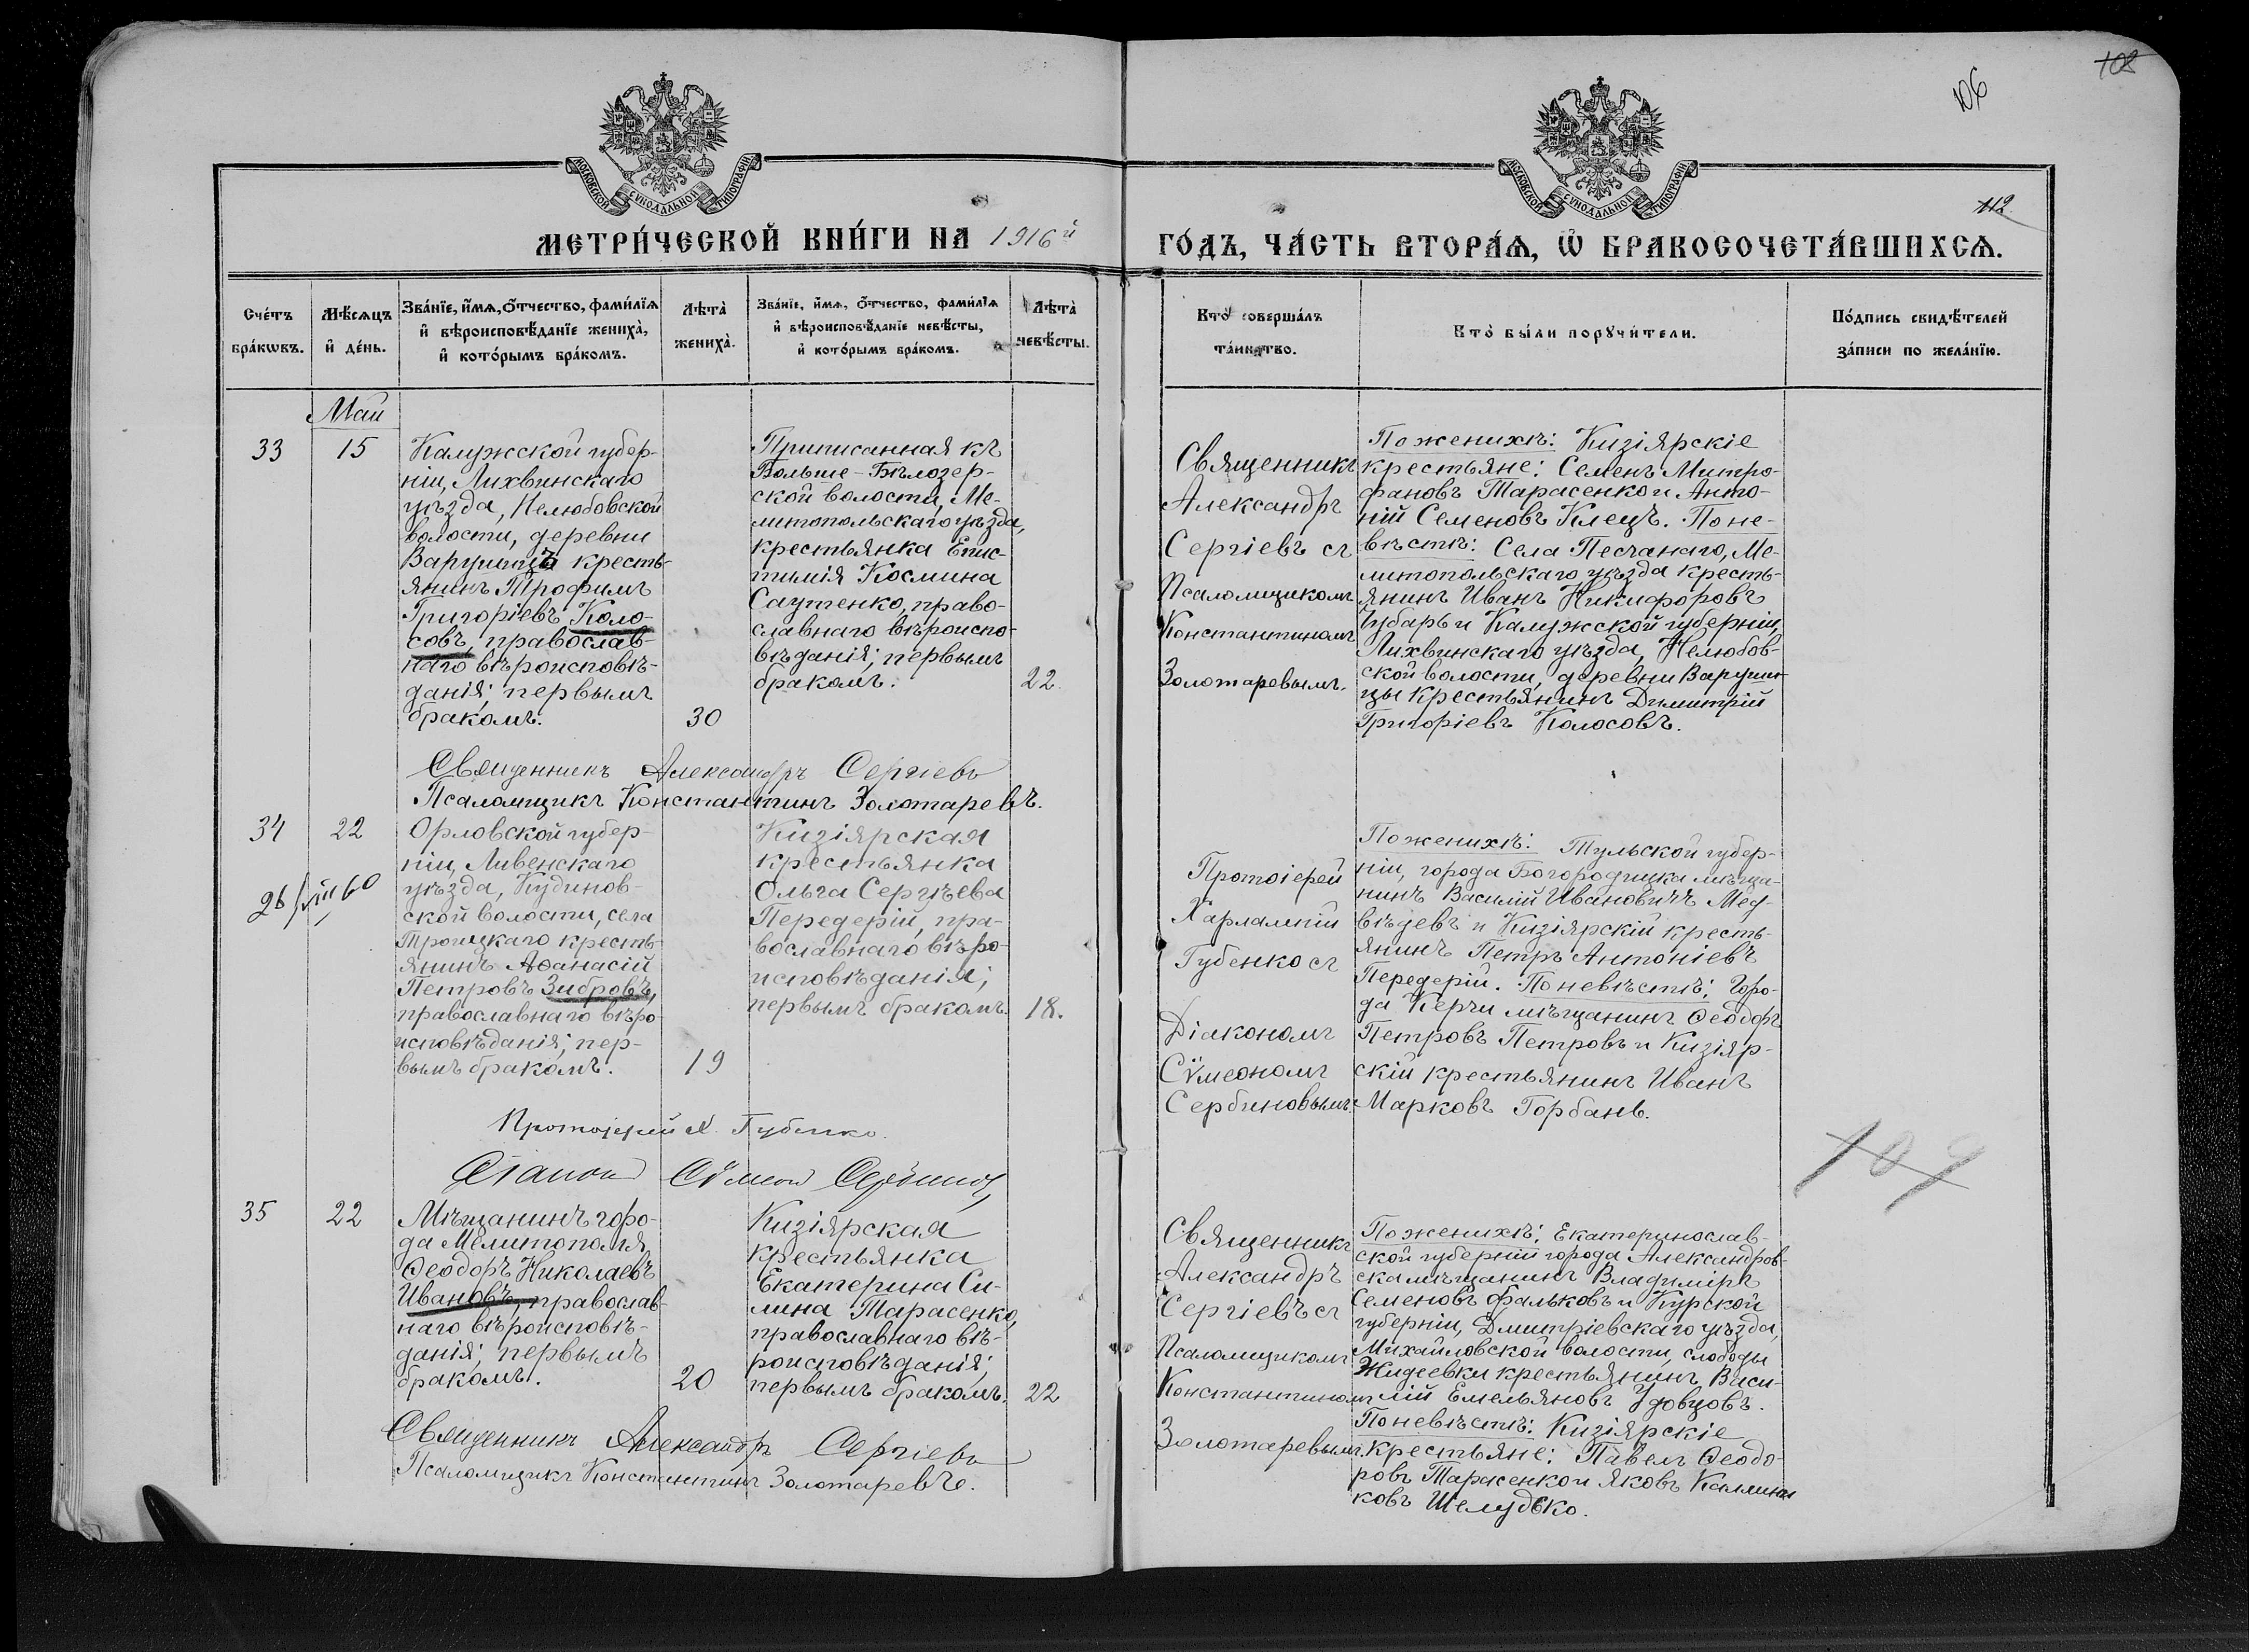 106
108
МОСКОВСКОЙ СѴНОДАЛЬНОЙ ТИПОГРАФІИ
МОСКОВСКОЙ СѴНОДАЛЬНОЙ ТИПОГРАФІИ
112.
МЕТРИ́ЧЕСКОЙ КНИ́ГИ НА 1916й
ГО́ДЪ, ЧА́СТЬ ВТОРА́Ѧ, Ѿ БРАКОСОЧЕТА́ВШИХСѦ.
Сче́тъ
бра́кѡвъ.
Мѣ́сѧцъ
и҆ де́нь.
Зва́нїе, и҆́мѧ, ѻ҆́тчество, фами́лїѧ
и҆ вѣроисповѣ́данїе жениха̀,
и҆ кото́рымъ бра́комъ.
Лѣта̀
жениха̀.
Зва́нїе, и҆́мѧ, ѻ҆́тчество, фами́лїѧ
и҆ вѣроисповѣ́данїе невѣ́сты,
и҆ кото́рымъ бра́комъ.
Лѣта̀
невѣ́сты.
Кто̀ соверша́лъ
та́инство.
Кто̀ бы́ли порꙋчи́тели.
По́дпись свидѣ́телей
за́писи по жела́нїю.
Май
33
15
Калужской губер-
ніи, Лихвинскаго
уѣзда, Нелюбовской
волости, деревни
Варушицъ кресть-
янинъ Трофимъ
Григоріевъ Коло-
совъ, православ-
наго вѣроисповѣ-
данія; первымъ
бракомъ.
30
Приписанная къ
Больше-Бѣлозер-
ской волости, Ме-
литопольскаго уѣзда,
крестьянка Епис-
тимія Космина
Саутенко, право-
славнаго вѣроиспо-
вѣданія; первымъ
бракомъ.
22
Священникъ
Александръ
Сергіевъ съ
Псаломщикомъ
Константиномъ
Золотаревымъ.
По женихѣ: Кизіярскіе
крестьяне: Семенъ Митро-
фановъ Тарасенко и Анто-
ній Семеновъ Клецъ. По не-
вѣстѣ: Села Песчанаго, Ме-
литопольскаго уѣзда кресть-
янинъ Иванъ Никифоровъ
Чубарь и Калужской губерніи,
Лихвинскаго уѣзда, Нелюбов-
ской волости, деревни Варуши-
цы крестьянинъ Димитрій
Григоріевъ Колосовъ.
Священникъ Александръ Сергіевъ
Псаломщикъ Константинъ Золотаревъ.
34
22
Орловской губер-
ніи, Ливенскаго
уѣзда, Кудинов-
ской волости, села
Троицкаго кресть-
янинъ Аѳанасій
Петровъ Зибровъ,
православнаго вѣро-
исповѣданія; пер-
вымъ бракомъ.
19
Кизіярская
крестьянка
Ольга Сергѣева
Передерій, пра-
вославнаго вѣро-
исповѣданія;
первымъ бракомъ.
18.
Протоіерей
Харлампій
Губенко съ
Діакономъ
Сѵмеономъ
Сербиновымъ
По женихѣ: Тульской губер-
ніи, города Богородицка мѣща-
нинъ Василій Ивановичъ Мед-
вѣдевъ и Кизіярскій кресть-
янинъ Петръ Антоніевъ
Передерій. По невѣстѣ: Горо-
да Керчи мѣщанинъ Ѳеодоръ
Петровъ Петровъ и Кизіяр-
скій крестьянинъ Иванъ
Марковъ Горбань.
Протоіерей Х. Губенко.
Діаконъ Сѵмеонъ Сербиновъ
109
35
22
Мѣщанинъ горо-
да Мелитополя
Ѳеодоръ Николаевъ
Ивановъ, православ-
наго вѣроисповѣ-
данія; первымъ
бракомъ.
20
Кизіярская
крестьянка
Екатерина Си-
лина Тарасенко,
православнаго вѣ-
роисповѣданія;
первымъ бракомъ.
22
Священникъ
Александръ
Сергіевъ съ
Псаломщикомъ
Константиномъ
Золотаревымъ.
По женихѣ: Екатеринослав-
ской губерніи города Александров-
ска мѣщанинъ Владиміръ
Семеновъ Фальковъ и Курской
губерніи, Дмитріевскаго уѣзда,
Михайловской волости, слободы
Жидеевки крестьянинъ Васи-
лій Емельяновъ Удовцовъ.
По невѣстѣ: Кизіярскіе
крестьяне: Павелъ Ѳеодо-
ровъ Тарасенко и Яковъ
ковъ Шелудько.
Священникъ Александръ Сергіевъ
Псаломщикъ Константинъ Золотаревъ.